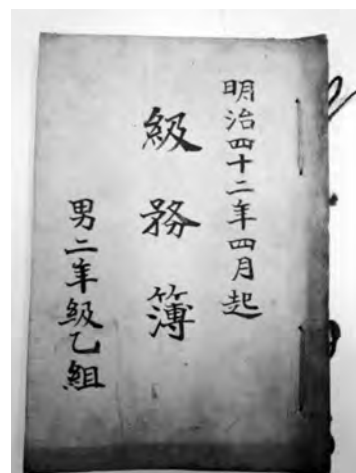 明治四十二年四月起
級務簿
男二年級乙組